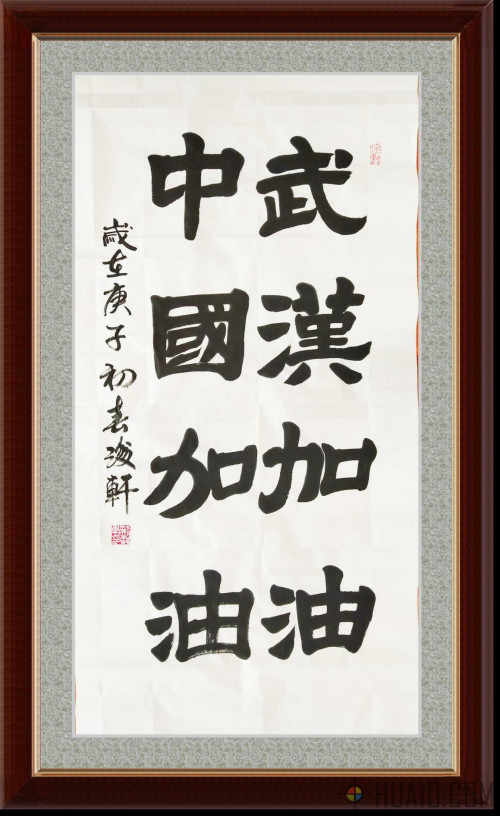 武漢加油
中國加油
歲在庚子初春凌軒
HUAID.COM